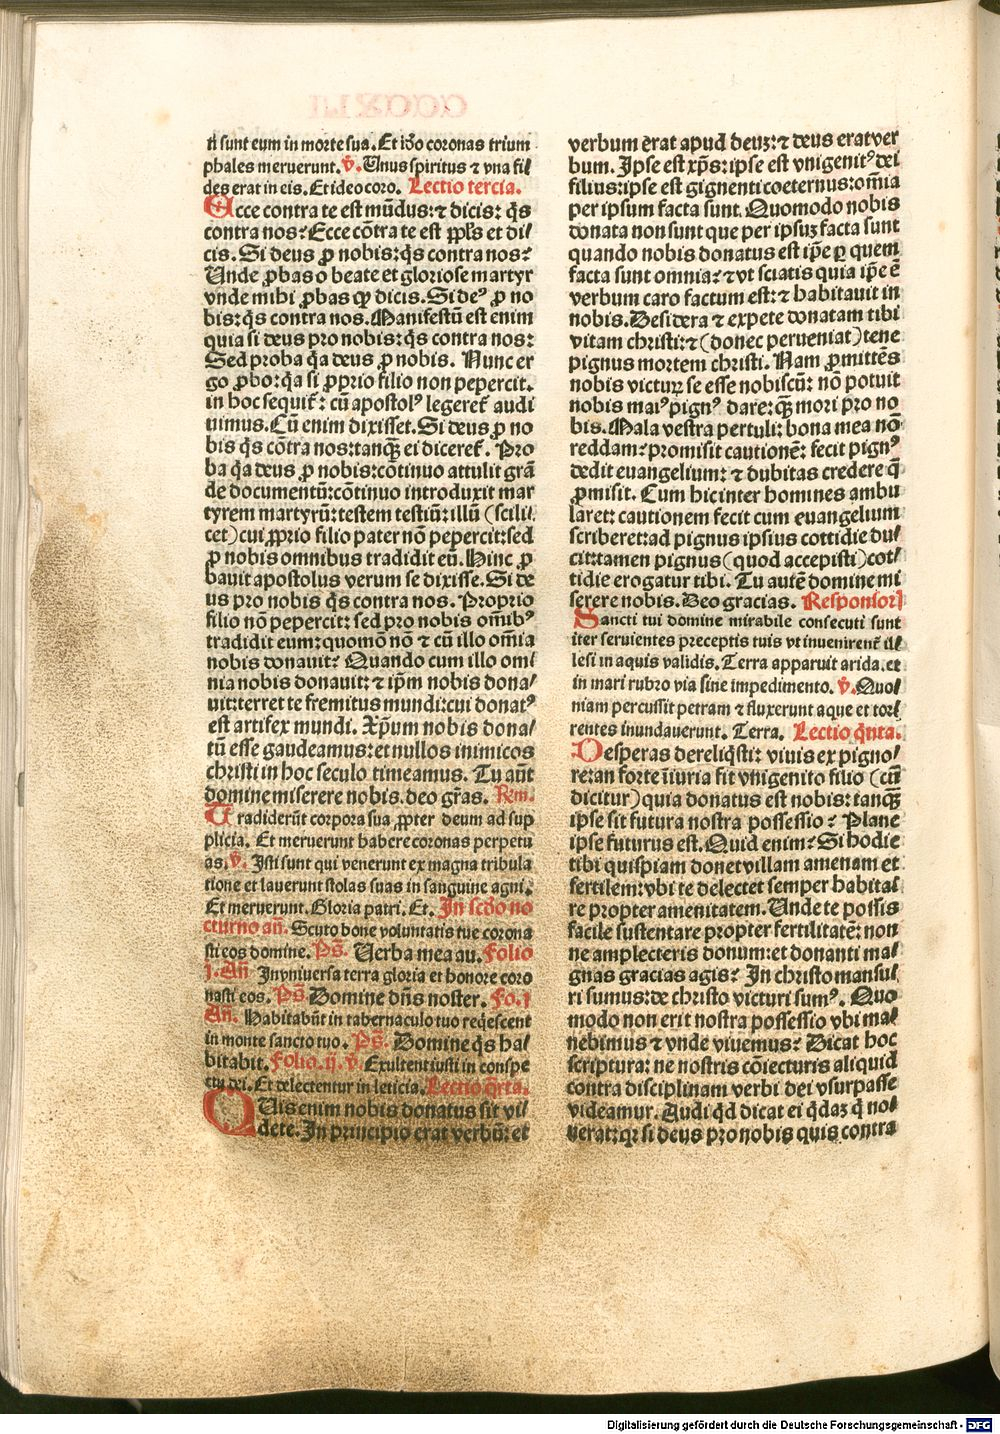 ti sunt eum in morte sua. Et iđo coronas trium
phales meruerunt. ℣. Unus spiritus ⁊ vna fi/
des erat in eis. Et ideo coro. Lectio tercia.
Ecce contra te est mūdus: ⁊ dicis: q̄s
contra nos? Ecce cōtra te est pp̄ls et di/
cis. Si deus ꝓ nobis: q̄s contra nos?
Unde ꝓbas o beate et gloriose martyr
vnde mihi ꝓbas qꝫ dicis. Si deꝰ ꝓ no
bis: q̄s contra nos. Manifestū est enim
quia si deus pro nobis: q̄s contra nos:
Sed proba q̄a deus ꝓ nobis. Nunc er
go ꝓbo: q̄a si ꝓprio filio non pepercit.
in hoc sequit᷑: cū apostolꝰ legeret᷑ audi
uimus. Cū enim dixisset. Si deus ꝓ no
bis q̄s cōtra nos: tanqꝫ ei diceret᷑. Pro
ba q̄a deus ꝓ nobis: cōtinuo attulit grā
de documentū: cōtinuo introduxit mar
tyrem martyrū: testem testiū: illū (scili/
cet) cui ꝓprio filio pater nō pepercit: sed
ꝓ nobis omnibus tradidit eū. Hinc ꝓ
bauit apostolus verum se dixisse. Si de
us pro nobis q̄s contra nos. Proprio
filio nō pepercit: sed pro nobis om̄ibꝰ
tradidit eum: quomō nō ⁊ cū illo om̄ia
nobis donauit? Quando cum illo om/
nia nobis donauit: ⁊ ip̄m nobis dona/
uit: terret te fremitus mundi: cui donatꝰ
est artifex mundi. Xp̄um nobis dona/
tū esse gaudeamus: et nullos inimicos
christi in hoc seculo timeamus. Tu aūt
domine miserere nobis. deo gr̄as. Rm̄.
Tradiderūt corpora sua ꝓpter deum ad sup
plicia. Et meruerunt habere coronas perpetu
as. ℣. Isti sunt qui venerunt ex magna tribula
tione et lauerunt stolas suas in sanguine agni.
Et meruerunt. Gloria patri. Et. In scđo no
cturno añ. Scuto bone voluntatis tue corona
sti eos domine. Pš. Verba mea au. Folio
j. Añ In vniuersa terra gloria et honore coro
nasti eos. Pš. Domine dn̄s noster. Fo. j
Añ. Habitabūt in tabernaculo tuo req̄escent
in monte sancto tuo. Pš. Domine q̄s ha/
bitabit. Folio. ij. ℣. Exultent iusti in conspe
ctu dei. Et delectentur in leticia. Lectio q̄rta.
Quis enim nobis donatus sit vi/
dete. In principio erat verbū: et
verbum erat apud deuꝫ: ⁊ deus erat ver
bum. Ipse est xp̄s: ipse est vnigenitꝰ dei
filius: ipse est gignenti coeternus: om̄ia
per ipsum facta sunt. Quomodo nobis
donata non sunt que per ipsuꝫ facta sunt
quando nobis donatus est ip̄e ꝑ quem
facta sunt omnia? ⁊ vt sciatis quia ip̄e ē
verbum caro factum est: ⁊ habitauit in
nobis. Desidera ⁊ expete donatam tibi
vitam christi: ⁊ (donec perueniat) tene
pignus mortem christi. Nam ꝓmittēs
nobis victuꝝ se esse nobiscū: nō potuit
nobis maiꝰ pignꝰ dare: qꝫ mori pro no
bis. Mala vestra pertuli: bona mea nō
reddam? promisit cautionē: fecit pignꝰ
dedit euangelium: ⁊ dubitas credere q̄
ꝓmisit. Cum hic inter homines ambu
laret: cautionem fecit cum euangelium
scriberet: ad pignus ipsius cottidie du/
cit: tamen pignus (quod accepisti) cot/
tidie erogatur tibi. Tu autē domine mi
serere nobis. Deo gracias. Responsori
Sancti tui domine mirabile consecuti sunt
iter seruientes preceptis tuis vt inuenirent᷑ il/
lesi in aquis validis. Terra apparuit arida. et
in mari rubro via sine impedimento. ℣. Quo/
niam percussit petram ⁊ fluxerunt aque et tor/
rentes inundauerunt. Terra. Lectio q̄nta.
Desperas dereliq̄sti: viuis ex pigno/
re: an forte īiuria fit vnigenito filio (cū
dicitur) quia donatus est nobis: tanqꝫ
ipse sit futura nostra possessio? Plane
ipse futurus est. Quid enim? Si hodie
tibi quispiam donet villam amenam et
fertilem: vbi te delectet semper habita/
re propter amenitatem. Unde te possis
facile sustentare propter fertilitatē: non
ne amplecteris donum: et donanti ma/
gnas gracias agis? In christo mansu/
ri sumus: de christo victuri sumꝰ. Quo
modo non erit nostra possessio vbi ma/
nebimus ⁊ vnde viuemus? Dicat hoc
scriptura: ne nostris cōiecturis aliquid
contra disciplinam verbi dei vsurpasse
videamur. Audi q̄d dicat ei q̄daꝫ q̄ no/
uerat: qꝛ si deus pro nobis quis contra
Digitalisierung gefördert durch die Deutsche Forschungsgemeinschaft - DFG